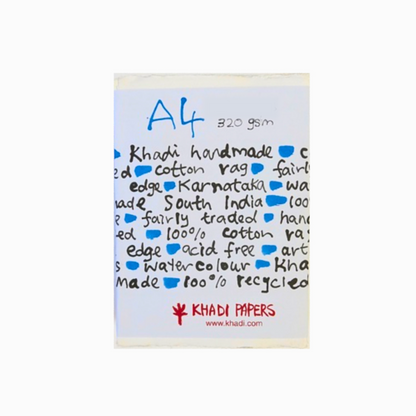 A4 320 gsm
Khadi handmade c
ed cotton rag fairly
edge Karnataka wa
made South India 100
e fairly traded hand
ed 100% cotton rag
edge acid free art
s watercolour Kha
made 100% recycled
KHADI PAPERS
www.khadi.com